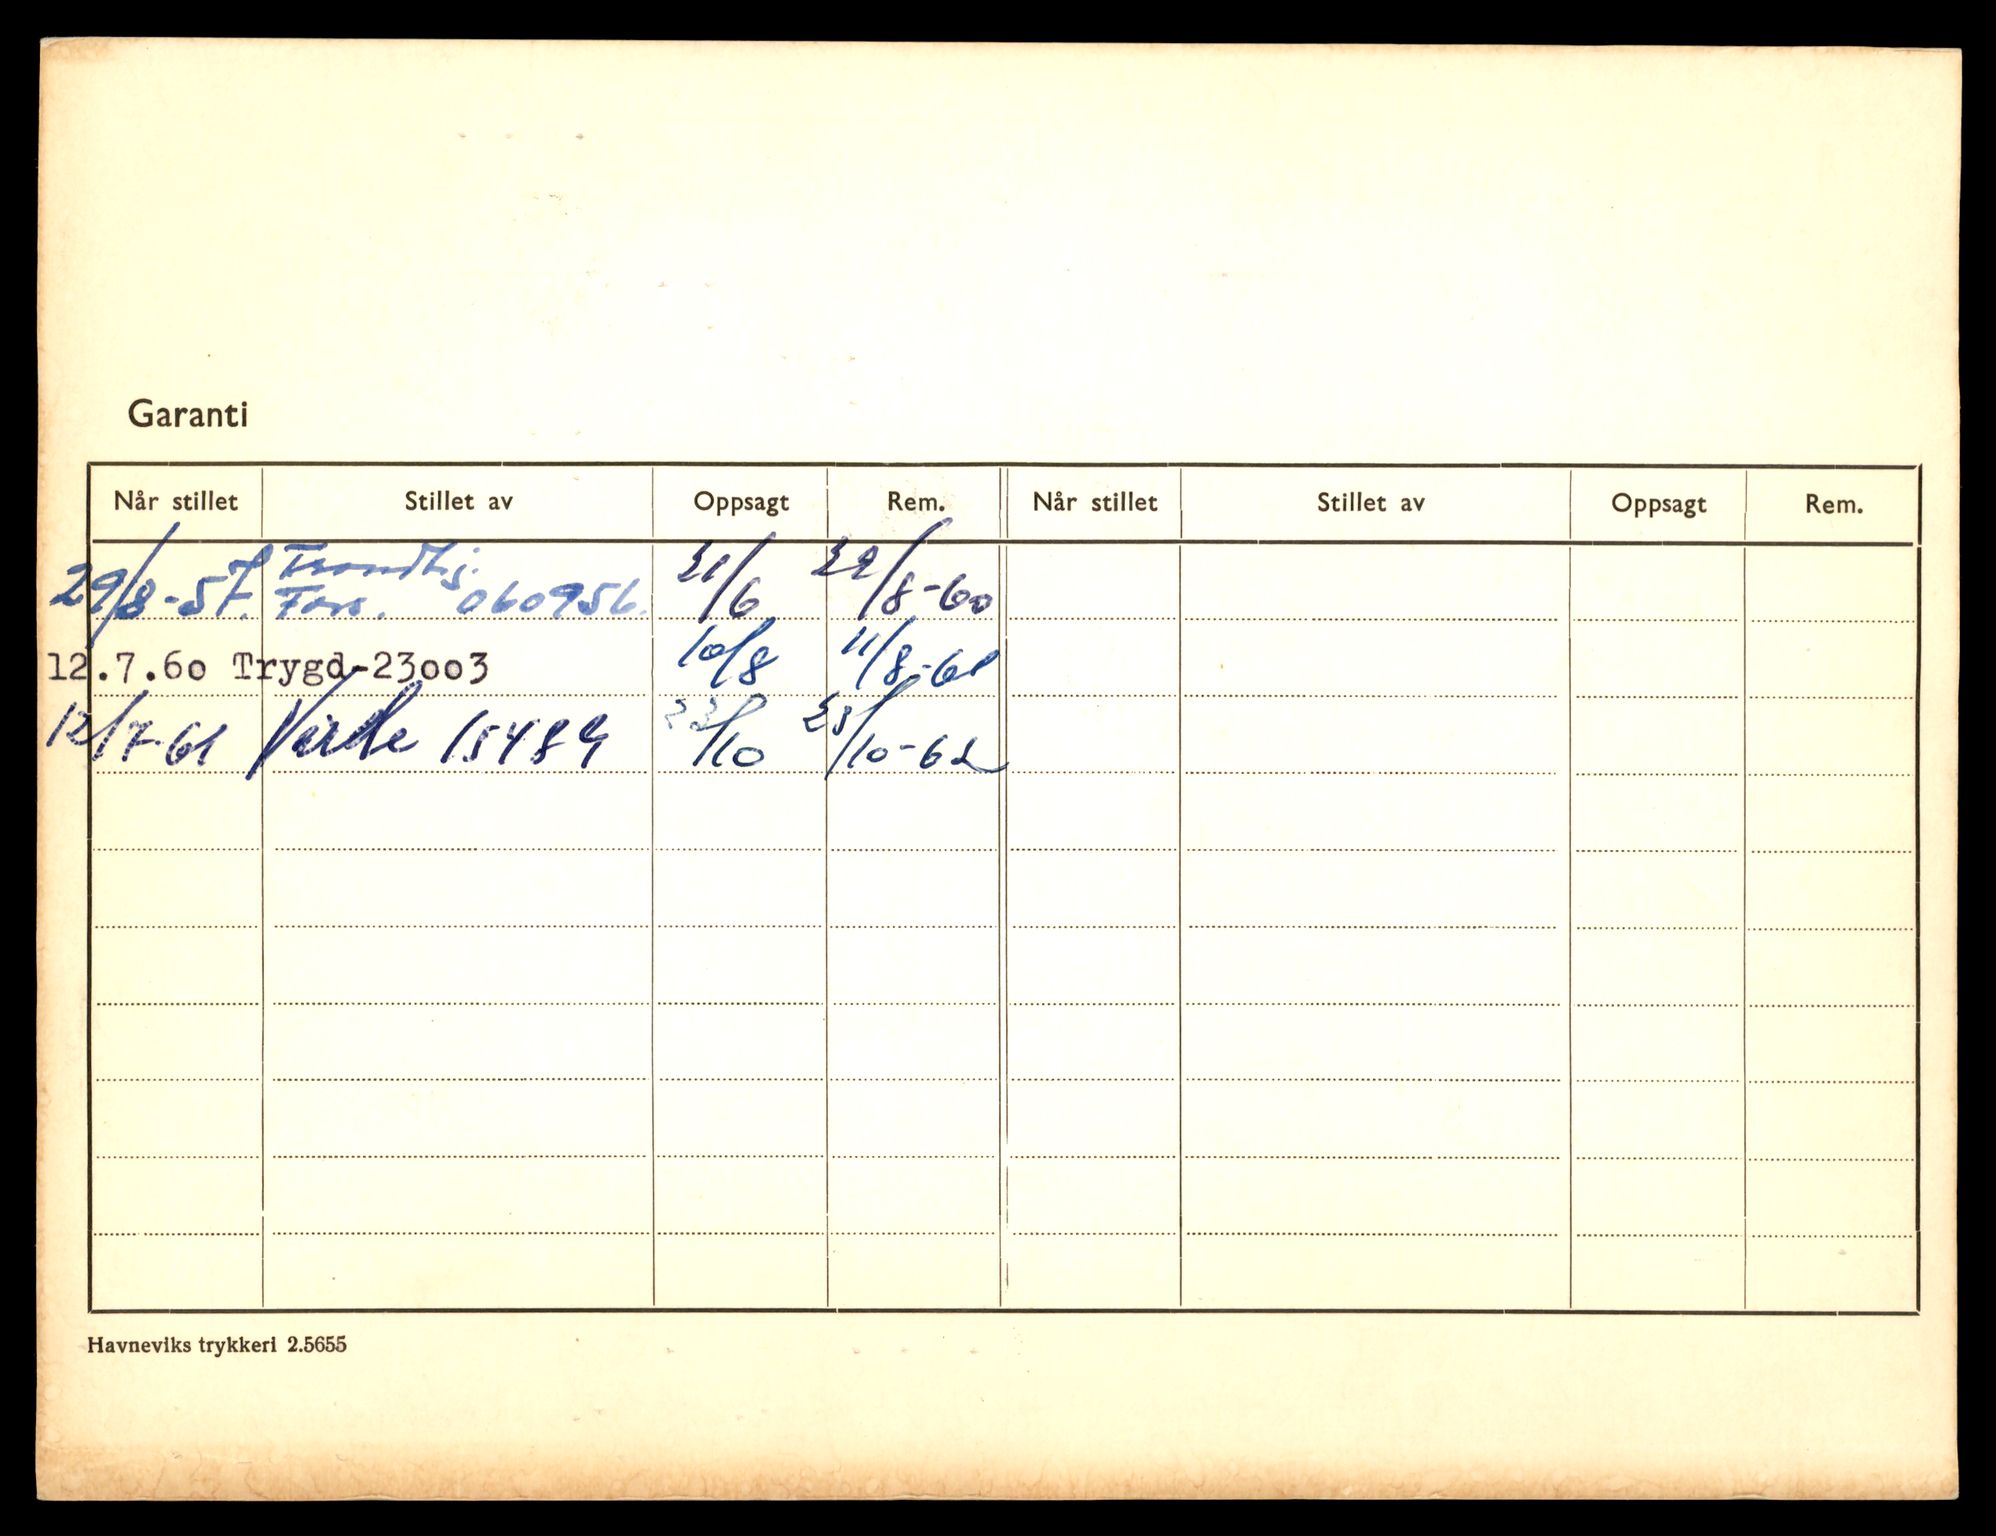 Garanti
Når stillet Stillet av Oppsagt Rem. Når stillet Stillet av Oppsagt Rem.
29/8-57. Trondhj. Fors. 060956. 21/6 22/8-60
12.7.60 Trygd-23003 10/8 11/8-61
12/7-61 15484 22/10 23/10-62
Havneviks trykkeri 2.5655